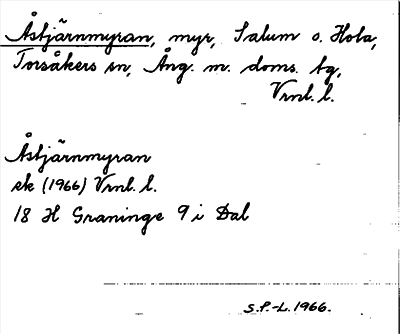 Åstjärnmyran, myr, Salum o. Hola,
Torsåkers sn, Ång. m. doms. tg,
Vrnl. l.
Åstjärnmyran
ek (1966) Vrnl. l.
18 H Graninge 9 i Dal
S.P.-L. 1966.